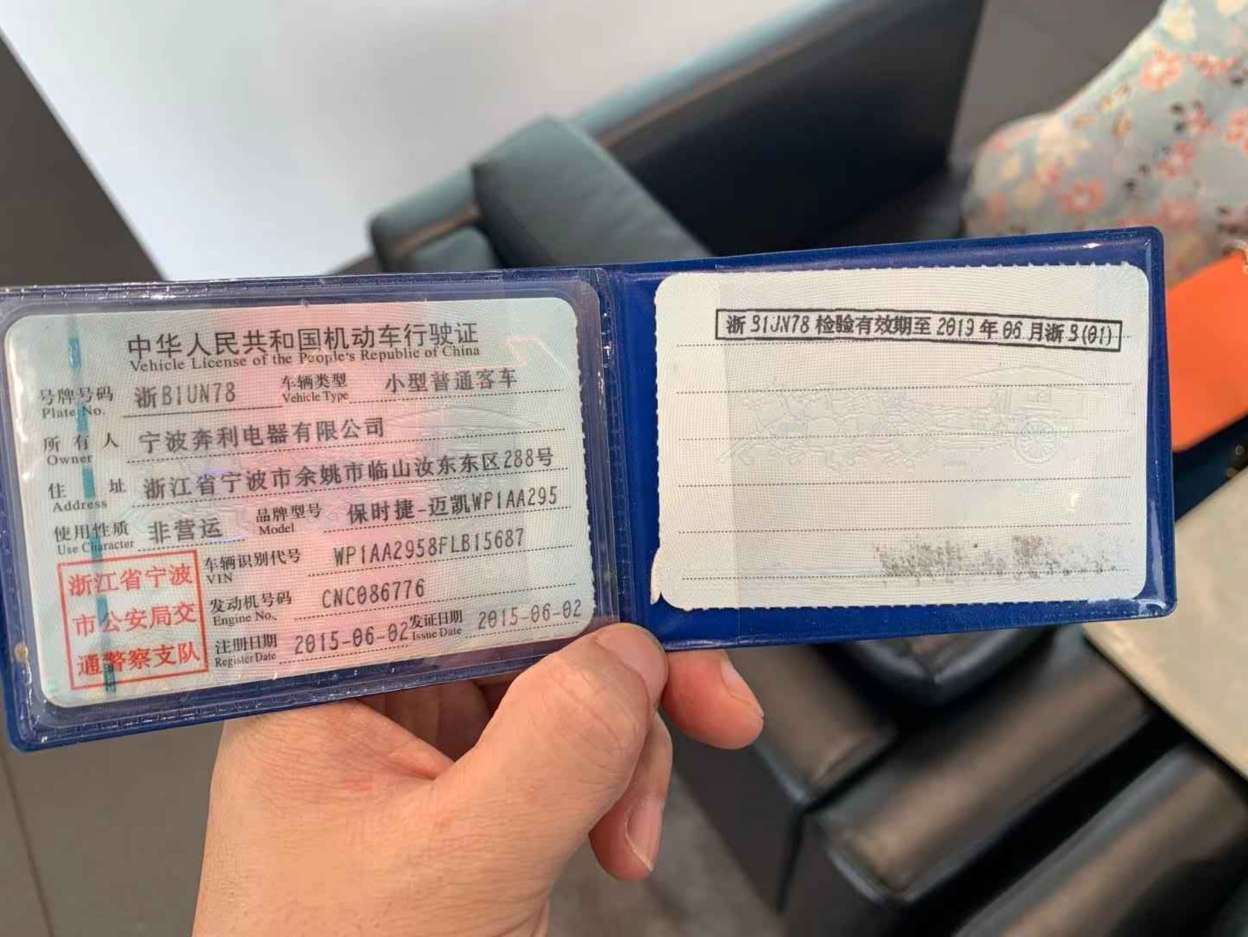 中华人民共和国机动车行驶证
Vehicle License of the People's Republic of China
号牌号码 浙B1UN78 车辆类型 小型普通客车
Plate No. Vehicle Type
所有人 宁波奔利电器有限公司
Owner
住址 浙江省宁波市余姚市临山汝东东区288号
Address
使用性质 非营运 品牌型号 保时捷-迈凯WP1AA295
Use Character Model
浙江省宁波
市公安局交
通警察支队
车辆识别代号 WP1AA2958FLB15687
VIN
发动机号码 CNC086776
Engine No.
注册日期 2015-06-02 发证日期 2015-06-02
Register Date Issue Date
浙B1UN78检验有效期至2019年06月浙B(01)